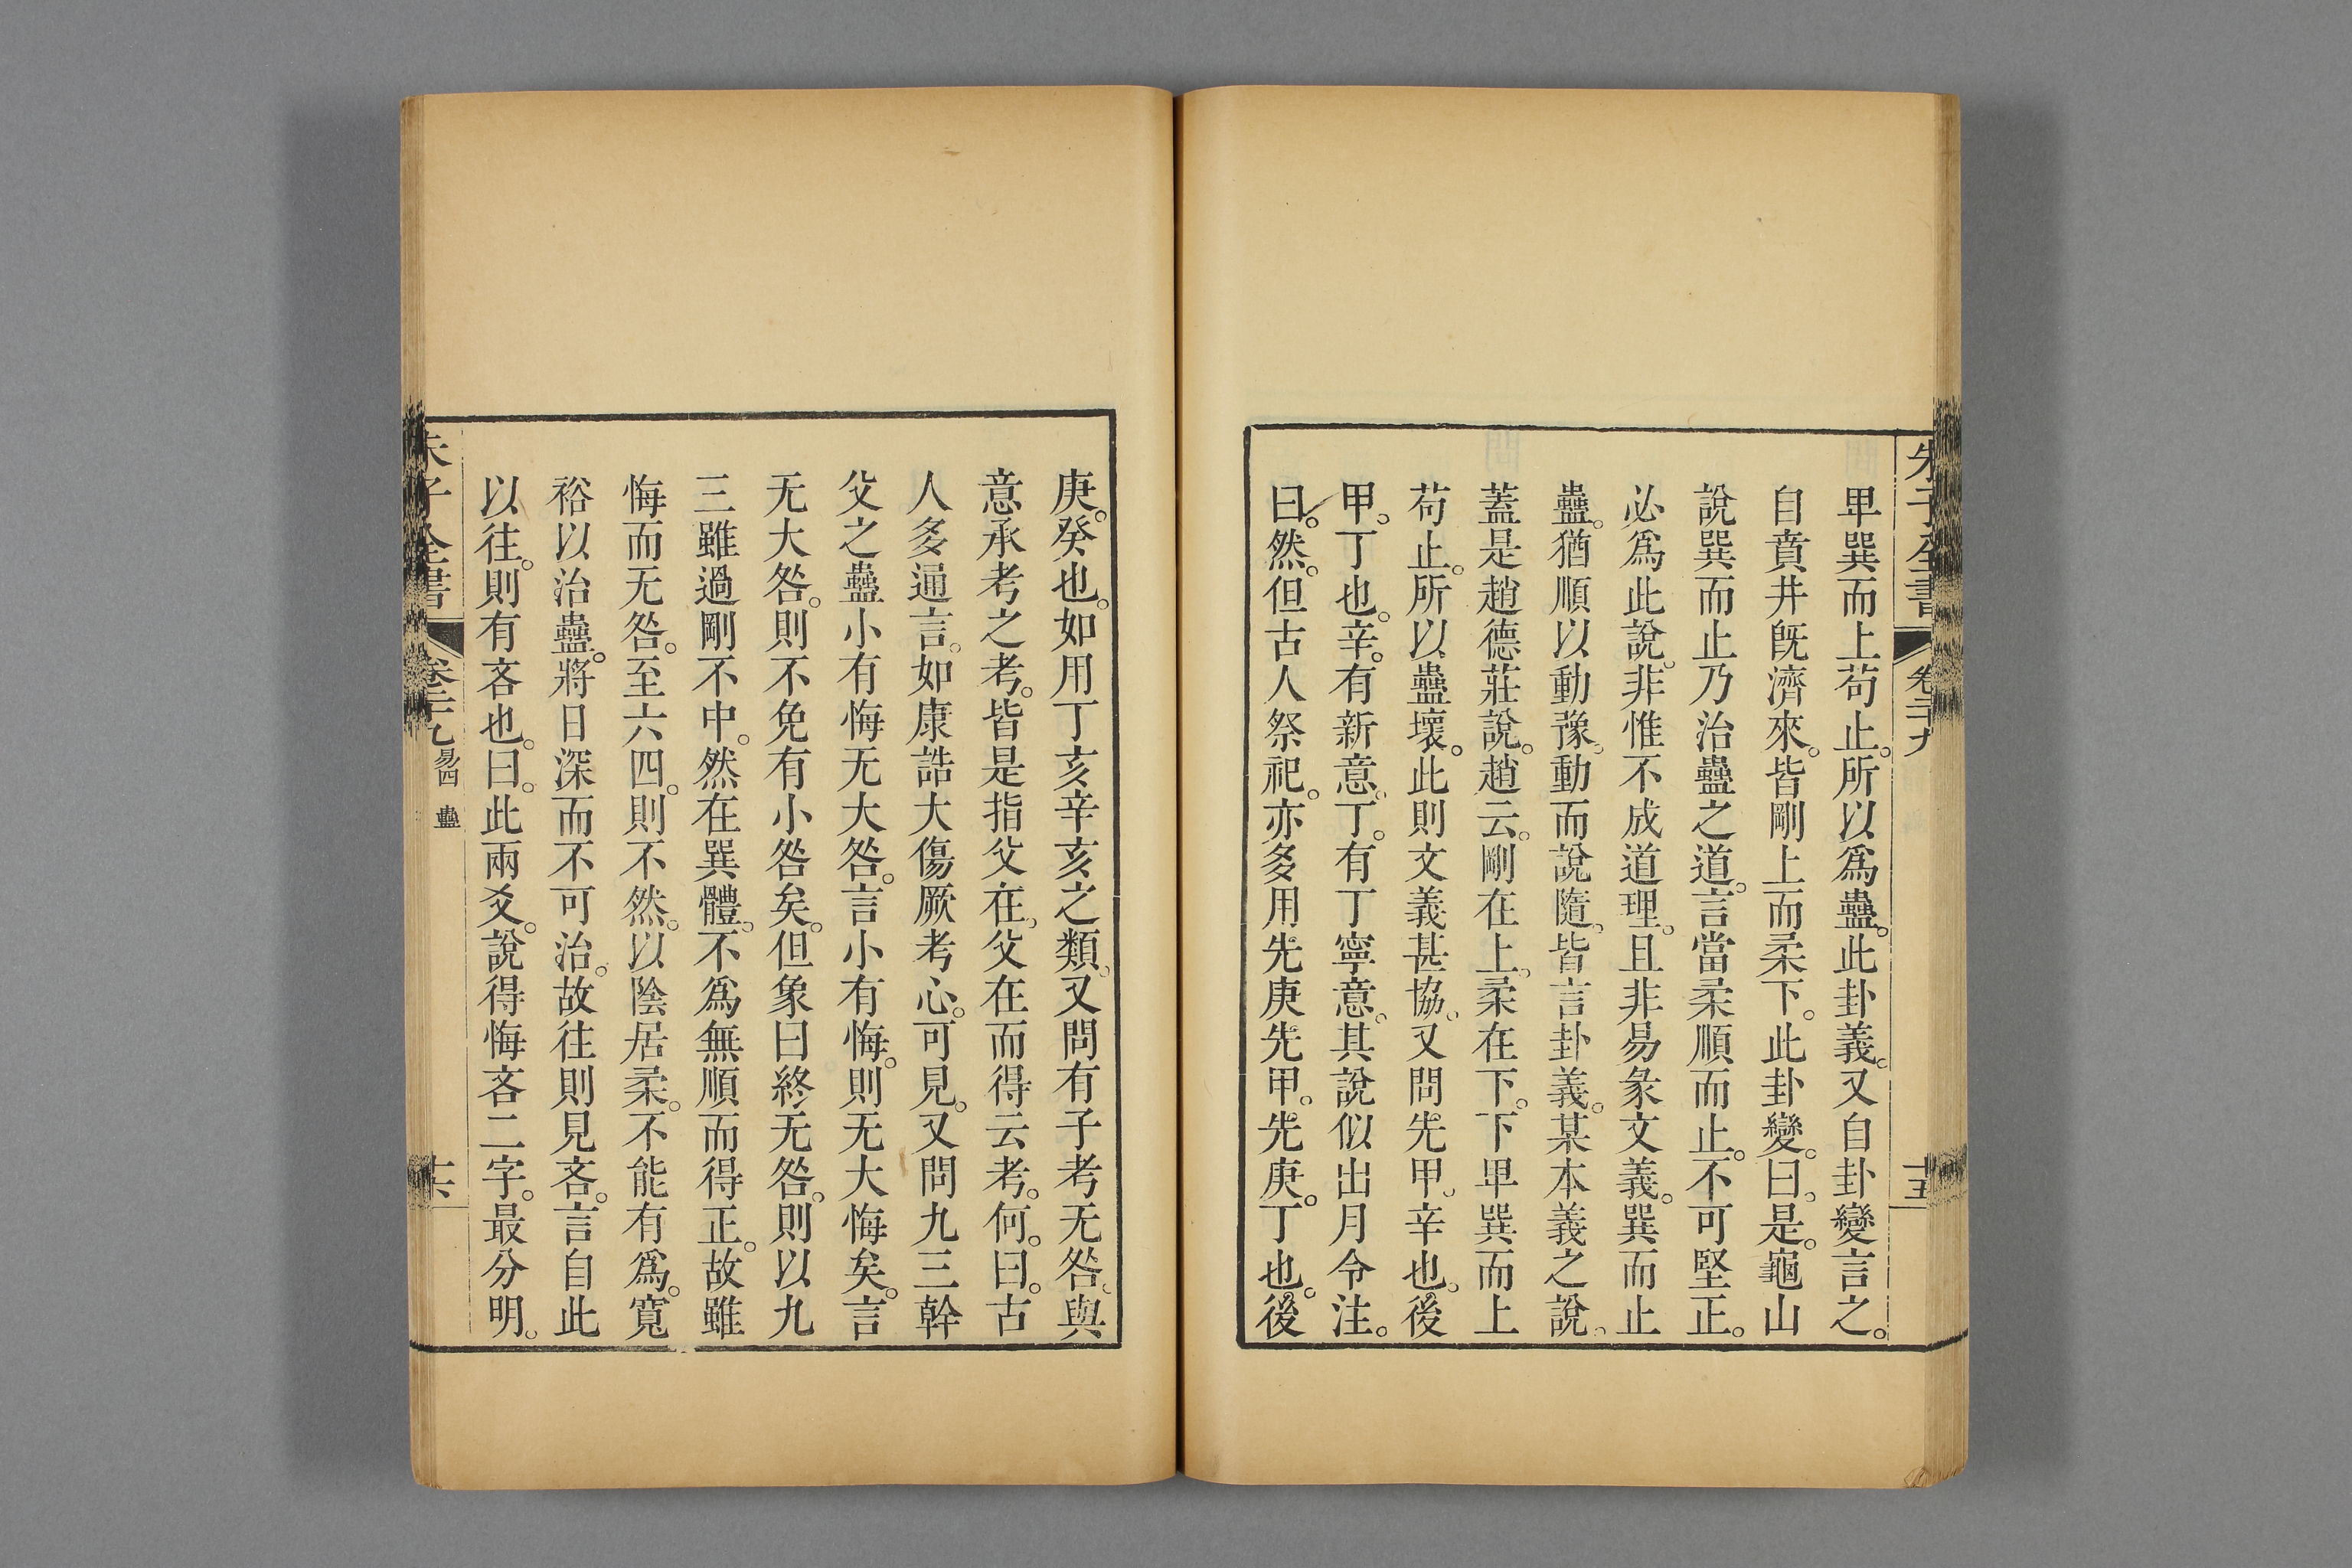 朱子全書 卷二十九 十五
卑巽而上苟止。所以爲蠱。此卦義。又自卦變言之。
自賁井旣濟來。皆剛上而柔下。此卦變。曰。是。龜山
說巽而止乃治蠱之道。言當柔順而止。不可堅正。
必爲此說。非惟不成道理。且非易彖文義。巽而止
蠱。猶順以動豫。動而說隨。皆言卦義。某本義之說。
蓋是趙德莊說。趙云。剛在上。柔在下。下卑巽而上
苟止。所以蠱壞。此則文義甚協。又問先甲。辛也。後
甲。丁也。辛。有新意。丁。有丁寧意。其說似出月令注。
曰。然。但古人祭祀。亦多用先庚先甲。先庚。丁也。後
庚。癸也。如用丁亥辛亥之類。又問有子考无咎。與
意承考之考。皆是指父在。父在而得云考。何。曰。古
人多通言。如康誥大傷厥考心。可見。又問九三幹
父之蠱小有悔无大咎。言小有悔。則无大悔矣。言
无大咎。則不免有小咎矣。但象曰終无咎。則以九
三雖過剛不中。然在巽體。不爲無順而得正。故雖
悔而无咎。至六四。則不然。以陰居柔。不能有爲。寬
裕以治蠱。將日深而不可治。故往則見吝。言自此
以往。則有吝也。曰。此兩爻。說得悔吝二字。最分明。
朱子全書 卷二十九 易四 蠱 十六